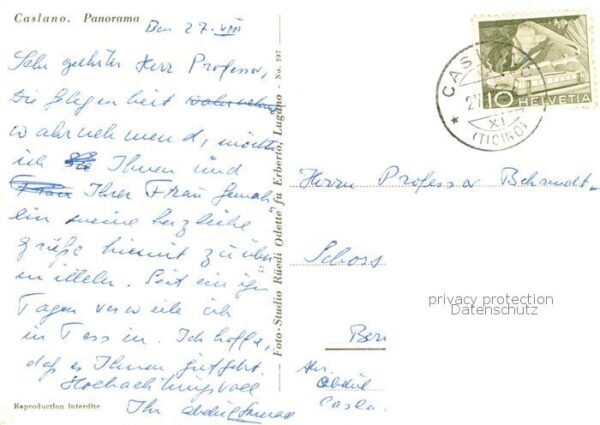 Caslano. Panorama
Den 27. VIII
Sehr geehrter Herr Professor,
Die Gelegenheit
wahrnehmend, möchte
ich Ihnen und
Ihrer Frau Gemahl
meine herzliche
Grüße hiermit zu über
mitteln. Seit einigen
Tagen verweile ich
in Tessin. Ich hoffe,
daß es Ihnen gut geht.
Hochachtungsvoll
Ihr
Reproduction interdite
Foto-Studio Rüedi Odette fu Erberto, Lugano - No. 297
CASLANO
XI
(TICINO)
10 HELVETIA
Herrn Professor
Schoss
privacy protection
Datenschutz
Bern
Abs.
Abdul
Caslan